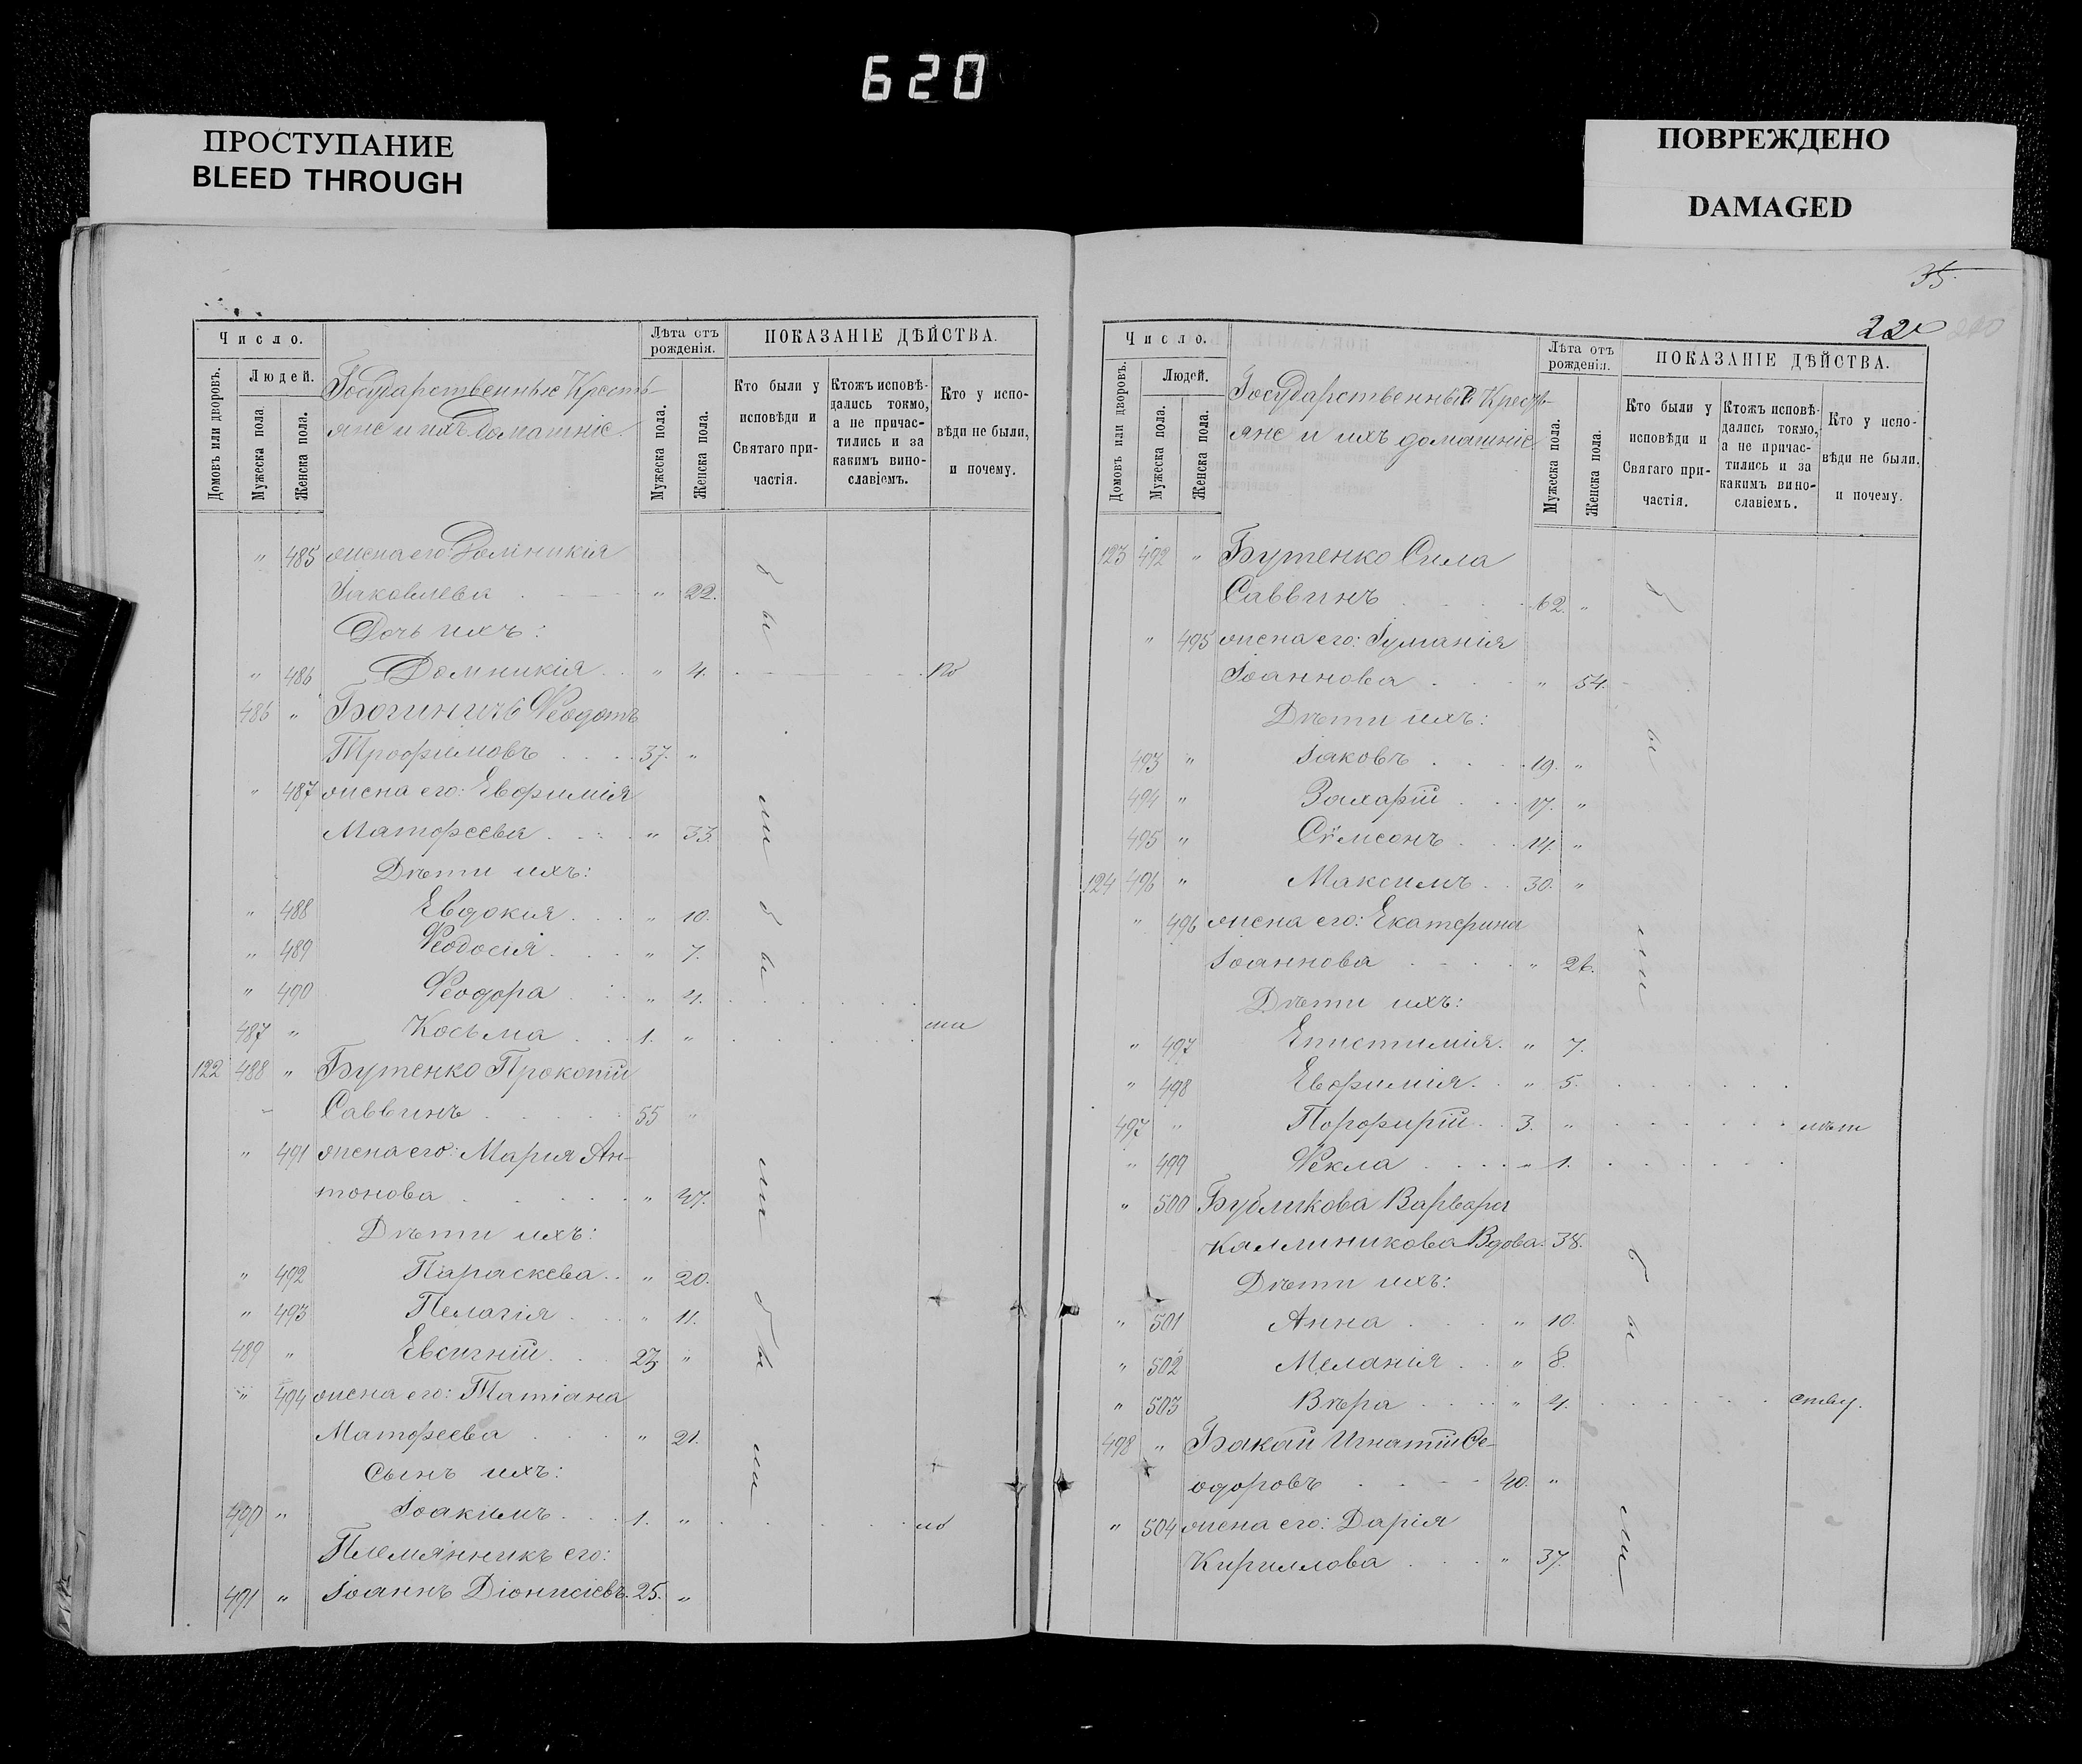 620
ПРОСТУПАНИЕ
BLEED THROUGH
ПОВРЕЖДЕНО
DAMAGED
Число.
Людей.
Домовъ или дворовъ.
Мужеска пола.
Женска пола.
Государственные Кресть-
яне и ихъ домашніе.
Лѣта отъ рожденія.
Мужеска пола.
Женска пола.
ПОКАЗАНІЕ ДѢЙСТВА.
Кто были у исповѣди и Святаго при-частія.
Ктожъ исповѣ-дались токмо, а не причас-тились и за какимъ вино-славіемъ.
Кто у испо-вѣди не были, и почему.
" 485 жена его: Домникія
Іаковлева " 22.
Дочь ихъ:
" 486 Домникія " 4. по
486 " Богиничъ Ѳеодотъ
Трофимовъ 37. "
" 487 жена его: Евфимія
Матфеева " 33.
Дѣти ихъ:
" 488 Евдокия " 10.
" 489 Ѳеодосія " 7.
" 490 Ѳеодора " 4.
487 " Косьма 1. " ма
122 488 " Бутенко Прокопій
Саввинъ 55 "
" 491 жена его: Мария Ан-
тонова " 47.
Дѣти ихъ:
" 492 Параскева " 20.
" 493 Пелагія " 11.
489 " Евсигній 23 "
" 494 жена его: Татіана
Матфеева " 21.
Сынъ ихъ:
490 " Іоакимъ 1. " ло
Племянникъ его:
491 " Іоаннъ Діонисіевъ. 25. "
бы
ли
бы
ли
бы
ли
35.
220
Число.
Людей.
Домовъ или дворовъ.
Мужеска пола.
Женска пола.
Государственные Кресть-
яне и ихъ домашніе.
Лѣта отъ рожденія.
Мужеска пола.
Женска пола.
ПОКАЗАНІЕ ДѢЙСТВА.
Кто были у исповѣди и Святаго при-частія.
Ктожъ исповѣ-дались токмо, а не причас-тились и за какимъ вино-славіемъ.
Кто у испо-вѣди не были, и почему.
123 492 " Бутенко Сила
Саввинъ 62. "
" 495 жена его: Іуліанія
Іоаннова " 54.
Дѣти ихъ:
493 " Іаковъ 19. "
494 " Захарій 17. "
495 " Сѵмеонъ 14. "
124 496 " Максимъ 30. "
" 496 жена его: Екатерина
Іоаннова " 26.
Дѣти ихъ:
" 497 Епистимія " 7.
" 498 Евфимія " 5.
497 " Порфирій 3. " лѣт
" 499 Ѳекла " 1.
" 500 Бубликова Варвара
Каллиникова Вдова. 38.
Дѣти ихъ:
" 501 Анна " 10.
" 502 Меланія " 8.
" 503 Вѣра " 4. ству.
498 " Бакай Игнатій Ѳе-
одоровъ 40. "
" 504 жена его: Дарія
Кириллова " 37.
бы
ли
бы
ли